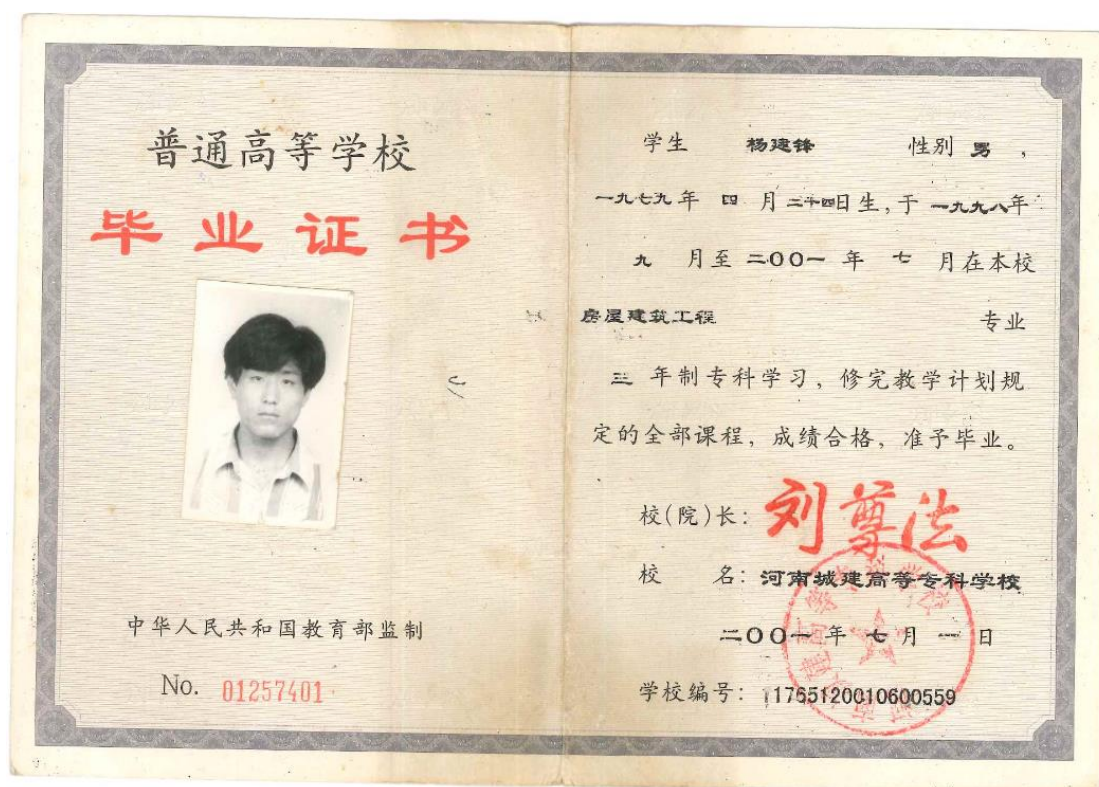 普通高等学校
毕业证书
中华人民共和国教育部监制
No. 01257401
学生 杨建锋 性别 男 ,
一九七九年 四 月二十四日生,于 一九九八年
九 月至 二00一 年 七 月在本校
房屋建筑工程 专业
三 年制专科学习，修完教学计划规
定的全部课程，成绩合格，准予毕业。
校(院)长: 刘尊法
校 名: 河南城建高等专科学校
二00一 年 七 月 一 日
学校编号: 11765120010600559
河南城建高等专科学校